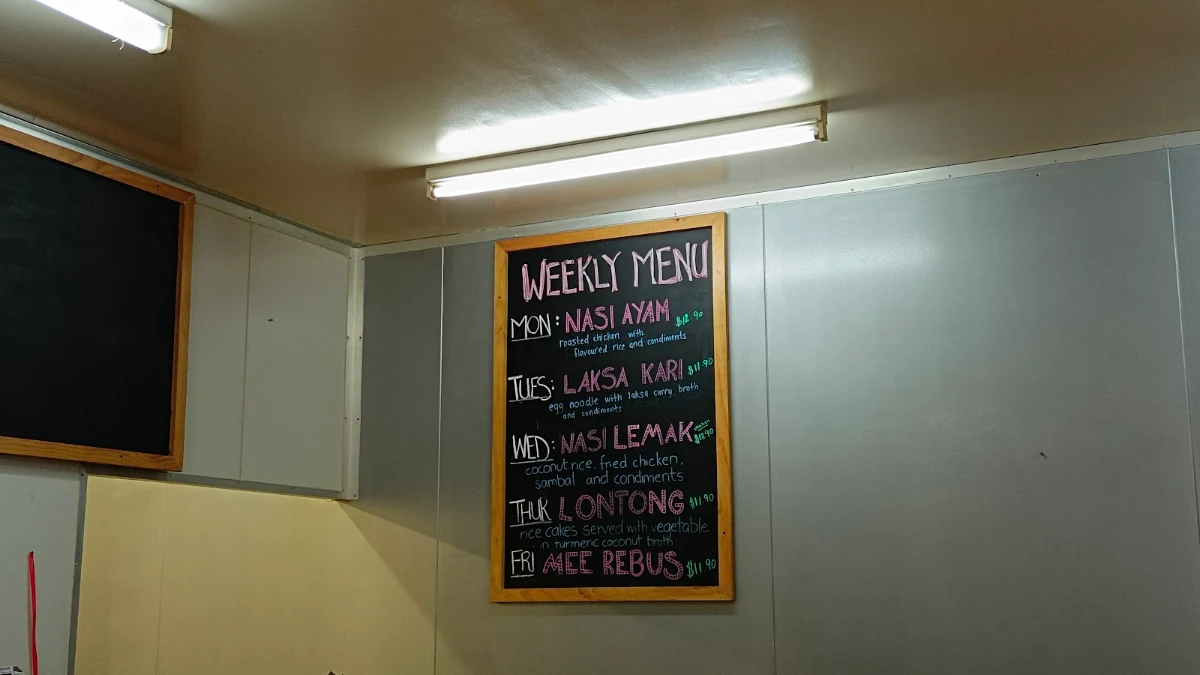 WEEKLY MENU
MON: NASI AYAM $12.90
roasted chicken with
flavoured rice and condiments
TUES: LAKSA KARI $11.90
egg noodle with laksa curry broth
and condiments
WED: NASI LEMAK $12.90
coconut rice, fried chicken,
sambal and condiments
THUR LONTONG $11.90
rice cakes served with vegetable
in turmeric coconut broth
FRI MEE REBUS $11.90